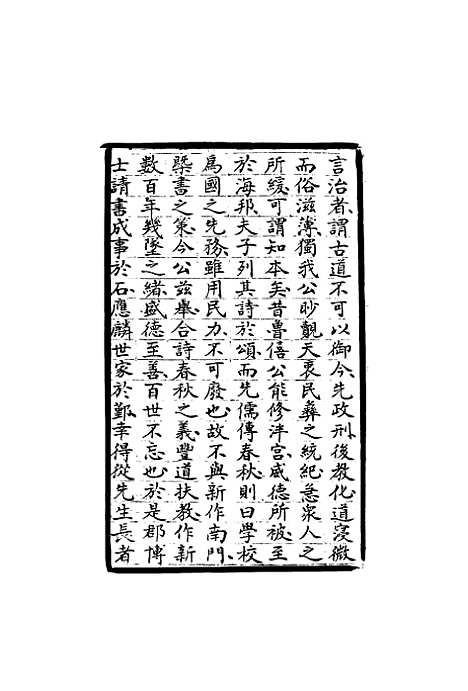 言治者謂古道不可以御今先政刑後教化道寖微
而俗滋薄獨我公眇覿天衷民彝之統紀急衆人之
所緩可謂知本矣昔魯僖公能修泮宫威德所被至
於海邦夫子列其詩於頌而先儒傳春秋則曰學校
爲國之先務雖用民力不可廢也故不與新作南門
槩書之策今公兹舉合詩春秋之義豐道扶教作新
數百年幾墜之緒盛德至善百世不忘也於是郡博
士請書成事於石應麟世家於鄞幸得從先生長者